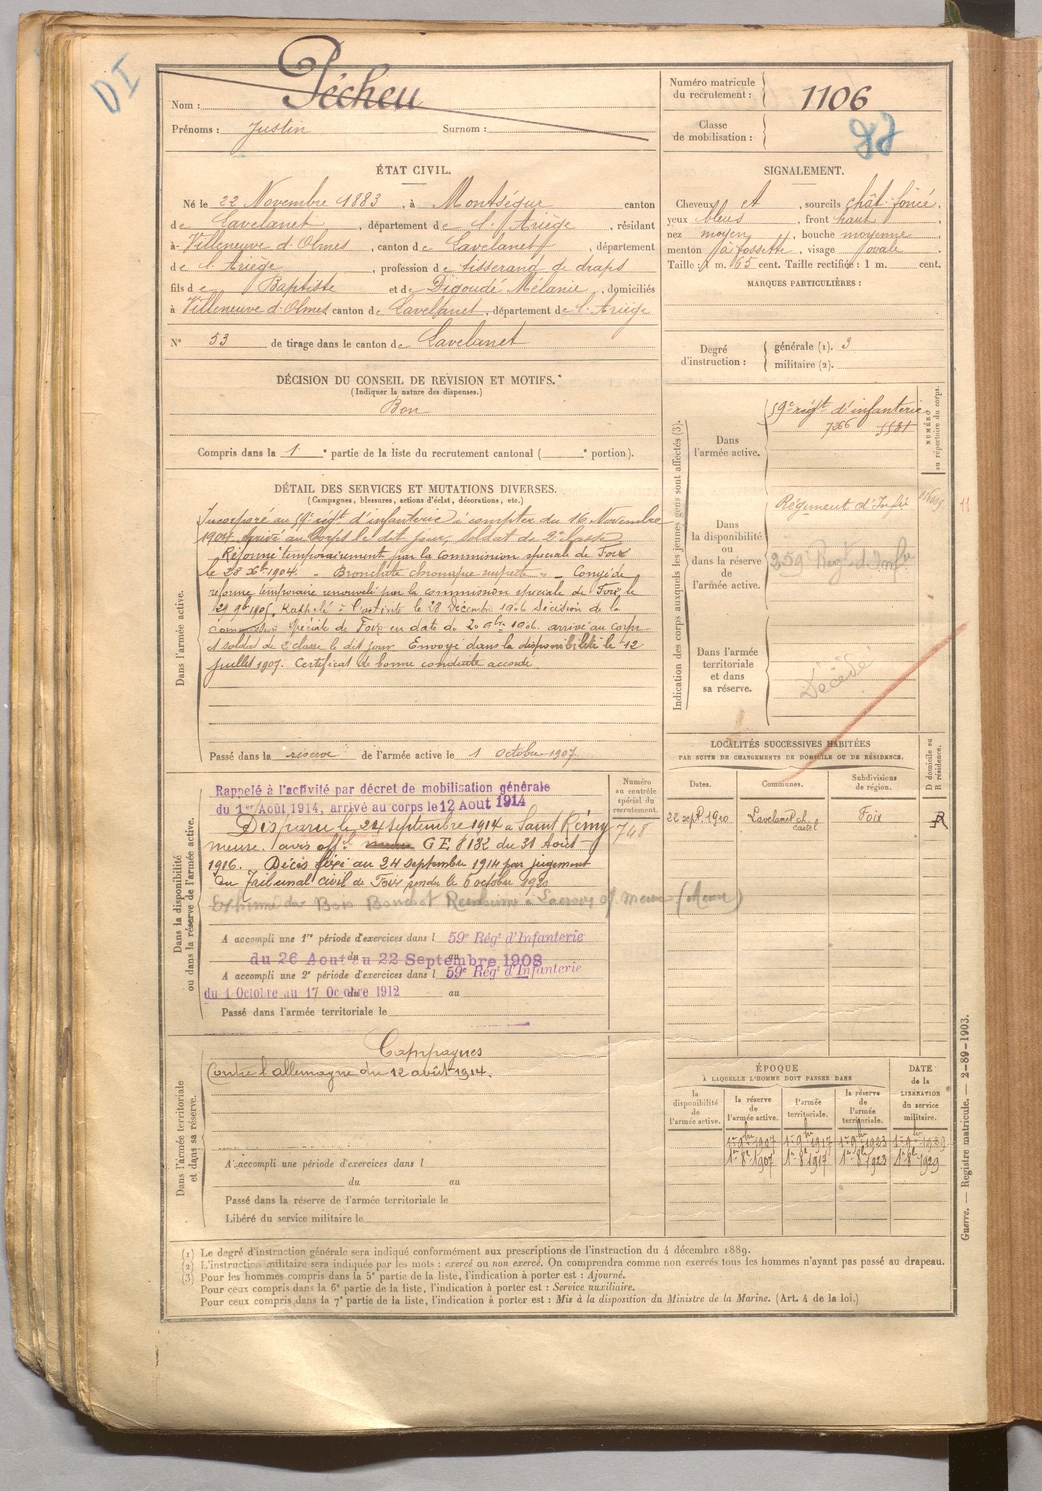 DI
Nom : Pécheu
Prénoms : Justin Surnom :
Numéro matricule du recrutement : 1106
Classe de mobilisation :
ÉTAT CIVIL.
Né le 22 Novembre 1883, à Montségur canton
de Lavelanet, département de l'Ariège, résidant
à Villeneuve d'Olmes, canton de Lavelanet, département
de l'Ariège, profession de tisserand de draps
fils de Baptiste et de Digoudé Mélanie, domiciliés
à Villeneuve d'Olmes canton de Lavelanet, département de l'Ariège
N° 53 de tirage dans le canton de Lavelanet
SIGNALEMENT.
Cheveux et, sourcils chât. foncé,
yeux bleus, front haut,
nez moyen, bouche moyenne,
menton à fossette, visage ovale.
Taille : 1 m. 65 cent. Taille rectifiée : 1 m. cent.
MARQUES PARTICULIÈRES :
Degré d'instruction : générale (1). 3
militaire (2).
DÉCISION DU CONSEIL DE REVISION ET MOTIFS.
(Indiquer la nature des dispenses.)
Bon
Compris dans la 1e partie de la liste du recrutement cantonal ( e portion).
DÉTAIL DES SERVICES ET MUTATIONS DIVERSES.
(Campagnes, blessures, actions d'éclat, décorations, etc.)
Dans l'armée active.
Incorporé au 59e régt d'infanterie à compter du 16 Novembre
1904. Arrivé au Corps le dit jour, soldat de 2e classe
Réformé temporairement par la commission spéciale de Foix
le 28 Xbre 1904. Bronchite chronique suspecte. Congé de
réforme temporaire renouvelé par la commission spéciale de Foix le
29 9bre 1905. Rappelé à l'activité le 28 Décembre 1906 Décision de la
commission spéciale de Foix en date du 20 9bre 1906. arrivé au corps
et soldat de 2e classe le dit jour. Envoyé dans la disponibilité le 12
juillet 1907. Certificat de bonne conduite accordé.
Passé dans la réserve de l'armée active le 1 octobre 1907
Indication des corps auxquels les jeunes gens sont affectés (3).
NUMÉRO au répertoire du corps.
Dans l'armée active. 59e régt d'infanterie
7266 5581
Dans la disponibilité ou dans la réserve de l'armée active. Régiment d'Infie
259e Régt d'Infie
Dans l'armée territoriale et dans sa réserve. Décédé
LOCALITÉS SUCCESSIVES HABITÉES
PAR SUITE DE CHANGEMENTS DE DOMICILE OU DE RÉSIDENCE.
Dates. Communes. Subdivisions de région. D domicile ou R résidence.
22 sept. 1910 Lavelanet ch. Foix R
Dans la disponibilité ou dans la réserve de l'armée active.
Numéro au contrôle spécial du recrutement.
748
Rappelé à l'activité par décret de mobilisation générale
du 1er Août 1914, arrivé au corps le 12 Aout 1914
Disparu le 24 septembre 1914 à Saint Rémy
meuse. (avis offel GE 8132 du 31 Août
1916. Décès fixé au 24 septembre 1914 par jugement
du Tribunal civil de Foix rendu le 6 octobre 1920
A accompli une 1re période d'exercices dans l 59e Régt d'Infanterie
du 26 Aout au 22 Septembre 1908
A accompli une 2e période d'exercices dans l 59e Régt d'Infanterie
du 1 Octobre au 17 Octobre 1912 au
Passé dans l'armée territoriale le
Dans l'armée territoriale et dans sa réserve.
Campagnes
Contre l'allemagne du 12 août 1914.
A accompli une période d'exercices dans l
du au
Passé dans la réserve de l'armée territoriale le
Libéré du service militaire le
ÉPOQUE
À LAQUELLE L'HOMME DOIT PASSER DANS
DATE de la LIBÉRATION du service militaire.
la disponibilité de l'armée active. la réserve de l'armée active. l'armée territoriale. la réserve de l'armée territoriale.
1er 9bre 1907 1er 9bre 1917 1er 9bre 1923 1er 9bre 1929
1er 8bre 1907 1er 8bre 1917 1er 8bre 1923 1er 8bre 1929
(1) Le degré d'instruction générale sera indiqué conformément aux prescriptions de l'instruction du 4 décembre 1889.
(2) L'instruction militaire sera indiquée par les mots : exercé ou non exercé. On comprendra comme non exercés tous les hommes n'ayant pas passé au drapeau.
(3) Pour les hommes compris dans la 5e partie de la liste, l'indication à porter est : Ajourné.
Pour ceux compris dans la 6e partie de la liste, l'indication à porter est : Service auxiliaire.
Pour ceux compris dans la 7e partie de la liste, l'indication à porter est : Mis à la disposition du Ministre de la Marine. (Art. 4 de la loi.)
Guerre. — Registre matricule. — 2-89-1903.